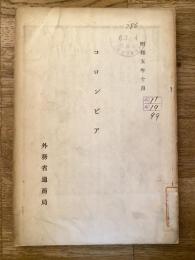 286
昭和五年十月
コロンビア
外務省通商局
11
19
99